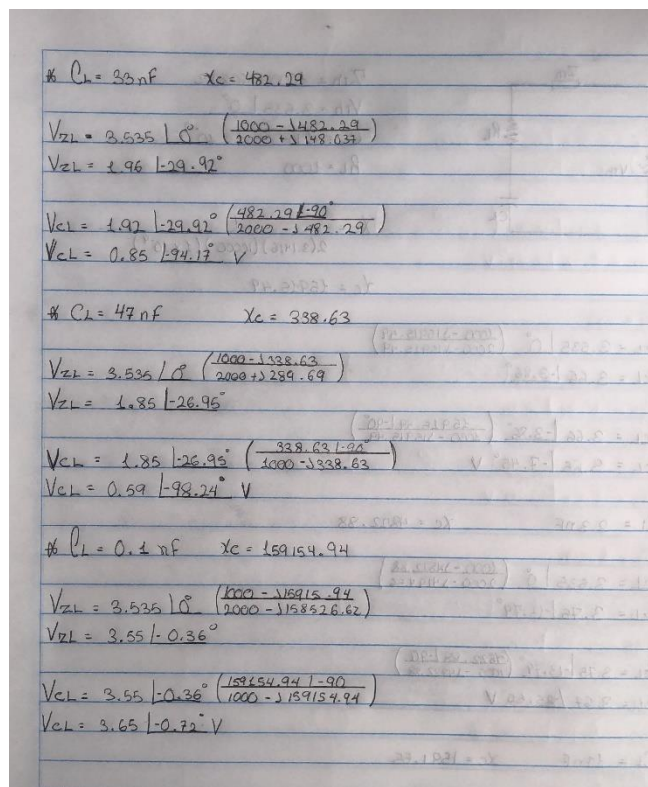 * CL = 33nF Xc = 482.29
VZL = 3.535 |0° (1000 - J482.29 / 2000 + J148.037)
VZL = 1.96 |-29.92°
VCL = 1.92 |-29.92° (482.29 |-90° / 2000 - J482.29)
VCL = 0.85 |-94.17° V
* CL = 47nF Xc = 338.63
VZL = 3.535 |0° (1000 - J338.63 / 2000 + J289.69)
VZL = 1.85 |-26.95°
VCL = 1.85 |-26.95° (338.63 |-90° / 1000 - J338.63)
VCL = 0.59 |-98.24° V
* CL = 0.1 nF Xc = 159154.94
VZL = 3.535 |0° (1000 - J15915.94 / 2000 - J158526.62)
VZL = 3.55 |-0.36°
VCL = 3.55 |-0.36° (159154.94 |-90 / 1000 - J159154.94)
VCL = 3.65 |-0.72° V